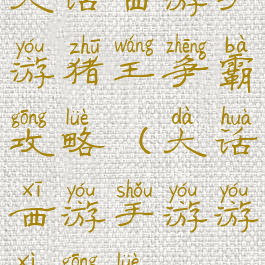 大话西游手
yóu zhū wáng zhēng bà
游猪王争霸
gōng lüè dà huà
攻略（大话
xī yóu shǒu yóu yóu
西游手游游
xì gōng lüè